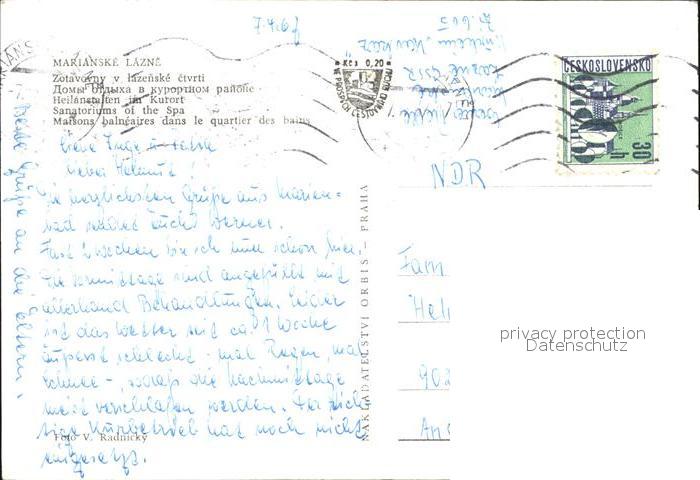 MARIÁNSKÉ LÁZNĚ
Zotavovny v lázeňské čtvrti
Домы отдыха в курортном районе
Heilanstalten im Kurort
Sanatoriums of the Spa
Maisons balnéaires dans le quartier des bains
Kčs 0,20
ČESKOSLOVENSKO
30 h
Liebe Inge
lieber Helmut!
Die herzlichsten Grüße aus Marien=
bad sendet Euch Werner.
Fast 2 Wochen bin ich nun schon hier.
Die Vormittage sind angefüllt mit
allerhand Behandlungen. Leider
ist das Wetter seit ca 1 Woche
äußerst schlecht - mal Regen, mal
Schnee -, sodaß die Nachmittage
meist verschlafen werden. Der rich=
tige Kurbetrieb hat noch nicht
eingesetzt.
Beste Grüße an die Eltern.
Foto V. Radnický
NAKLADATELSTVÍ ORBIS – PRAHA
NDR
Fam
Hel
903
privacy protection
Datenschutz